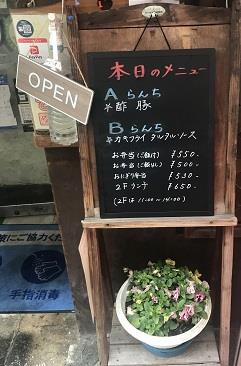 OPEN
本日のメニュー
A らんち
酢豚
B らんち
カキフライ タルタルソース
お弁当(ご飯付) ¥550-
お弁当(ご飯なし) ¥500-
おにぎり弁当 ¥530-
2F ランチ ¥650-
(2Fは 11:00~14:00)
にご協力くだ
手指消毒